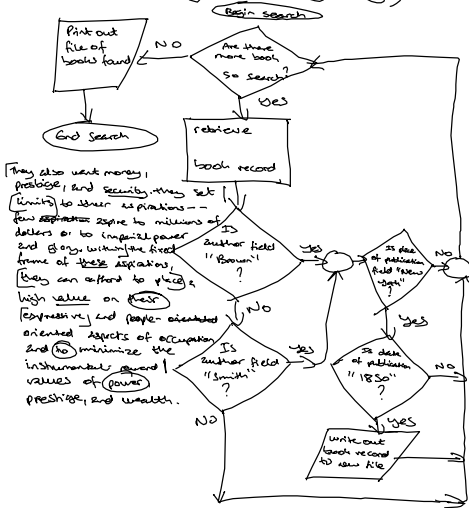 Begin Search
Print out
file of
books found
NO
Are there
more book
so search?
yes
End Search
retrieve
book record
They also want money,
prestige, and security. they set
limits to their aspirations --
few aspiration aspire to millions of
dollars or to imperial power
and glory. within the fixed
frame of these aspirations,
they can afford to place a
high value on their
expressive and people-orientated
oriented aspects of occupation
and to minimize the
instrumental reward
values of power
prestige, and wealth.
Is
author field
"Brown"
?
yes
NO
Is date
of publication
field "New
York"
?
NO
yes
Is
author field
"Smith"
?
yes
NO
Is date
of publication
"1850"
?
NO
yes
write out
book record
to new file